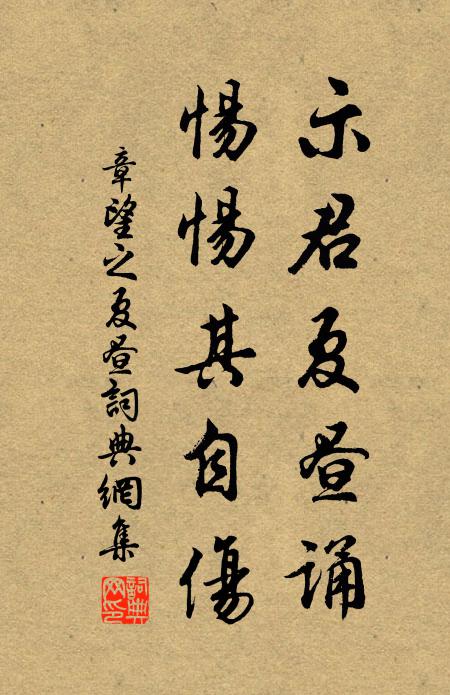 示君夏昼誦
惕惕其自傷
章望之夏昼詞典網集
詞典网印